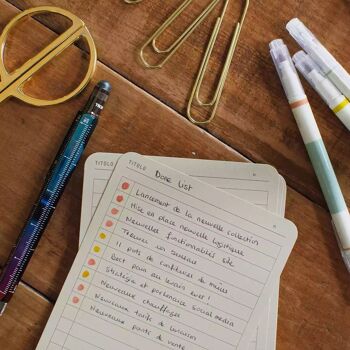 TITOLO
TITOLO
Done list
Lancement de la nouvelle collection
Mise en place nouvelle logistique
Nouvelles fonctionnalités site
Trouver un serveur
11 pots de confitures de mûres
Best pain au levain ever!
Stratégie et partenance social media
Nouveaux chauffages
Nouveaux tarifs de livraison
Nouveaux points de vente